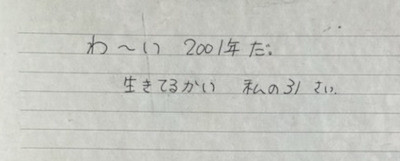 わ〜い 2001年だ
生きてるかい 私の31さい